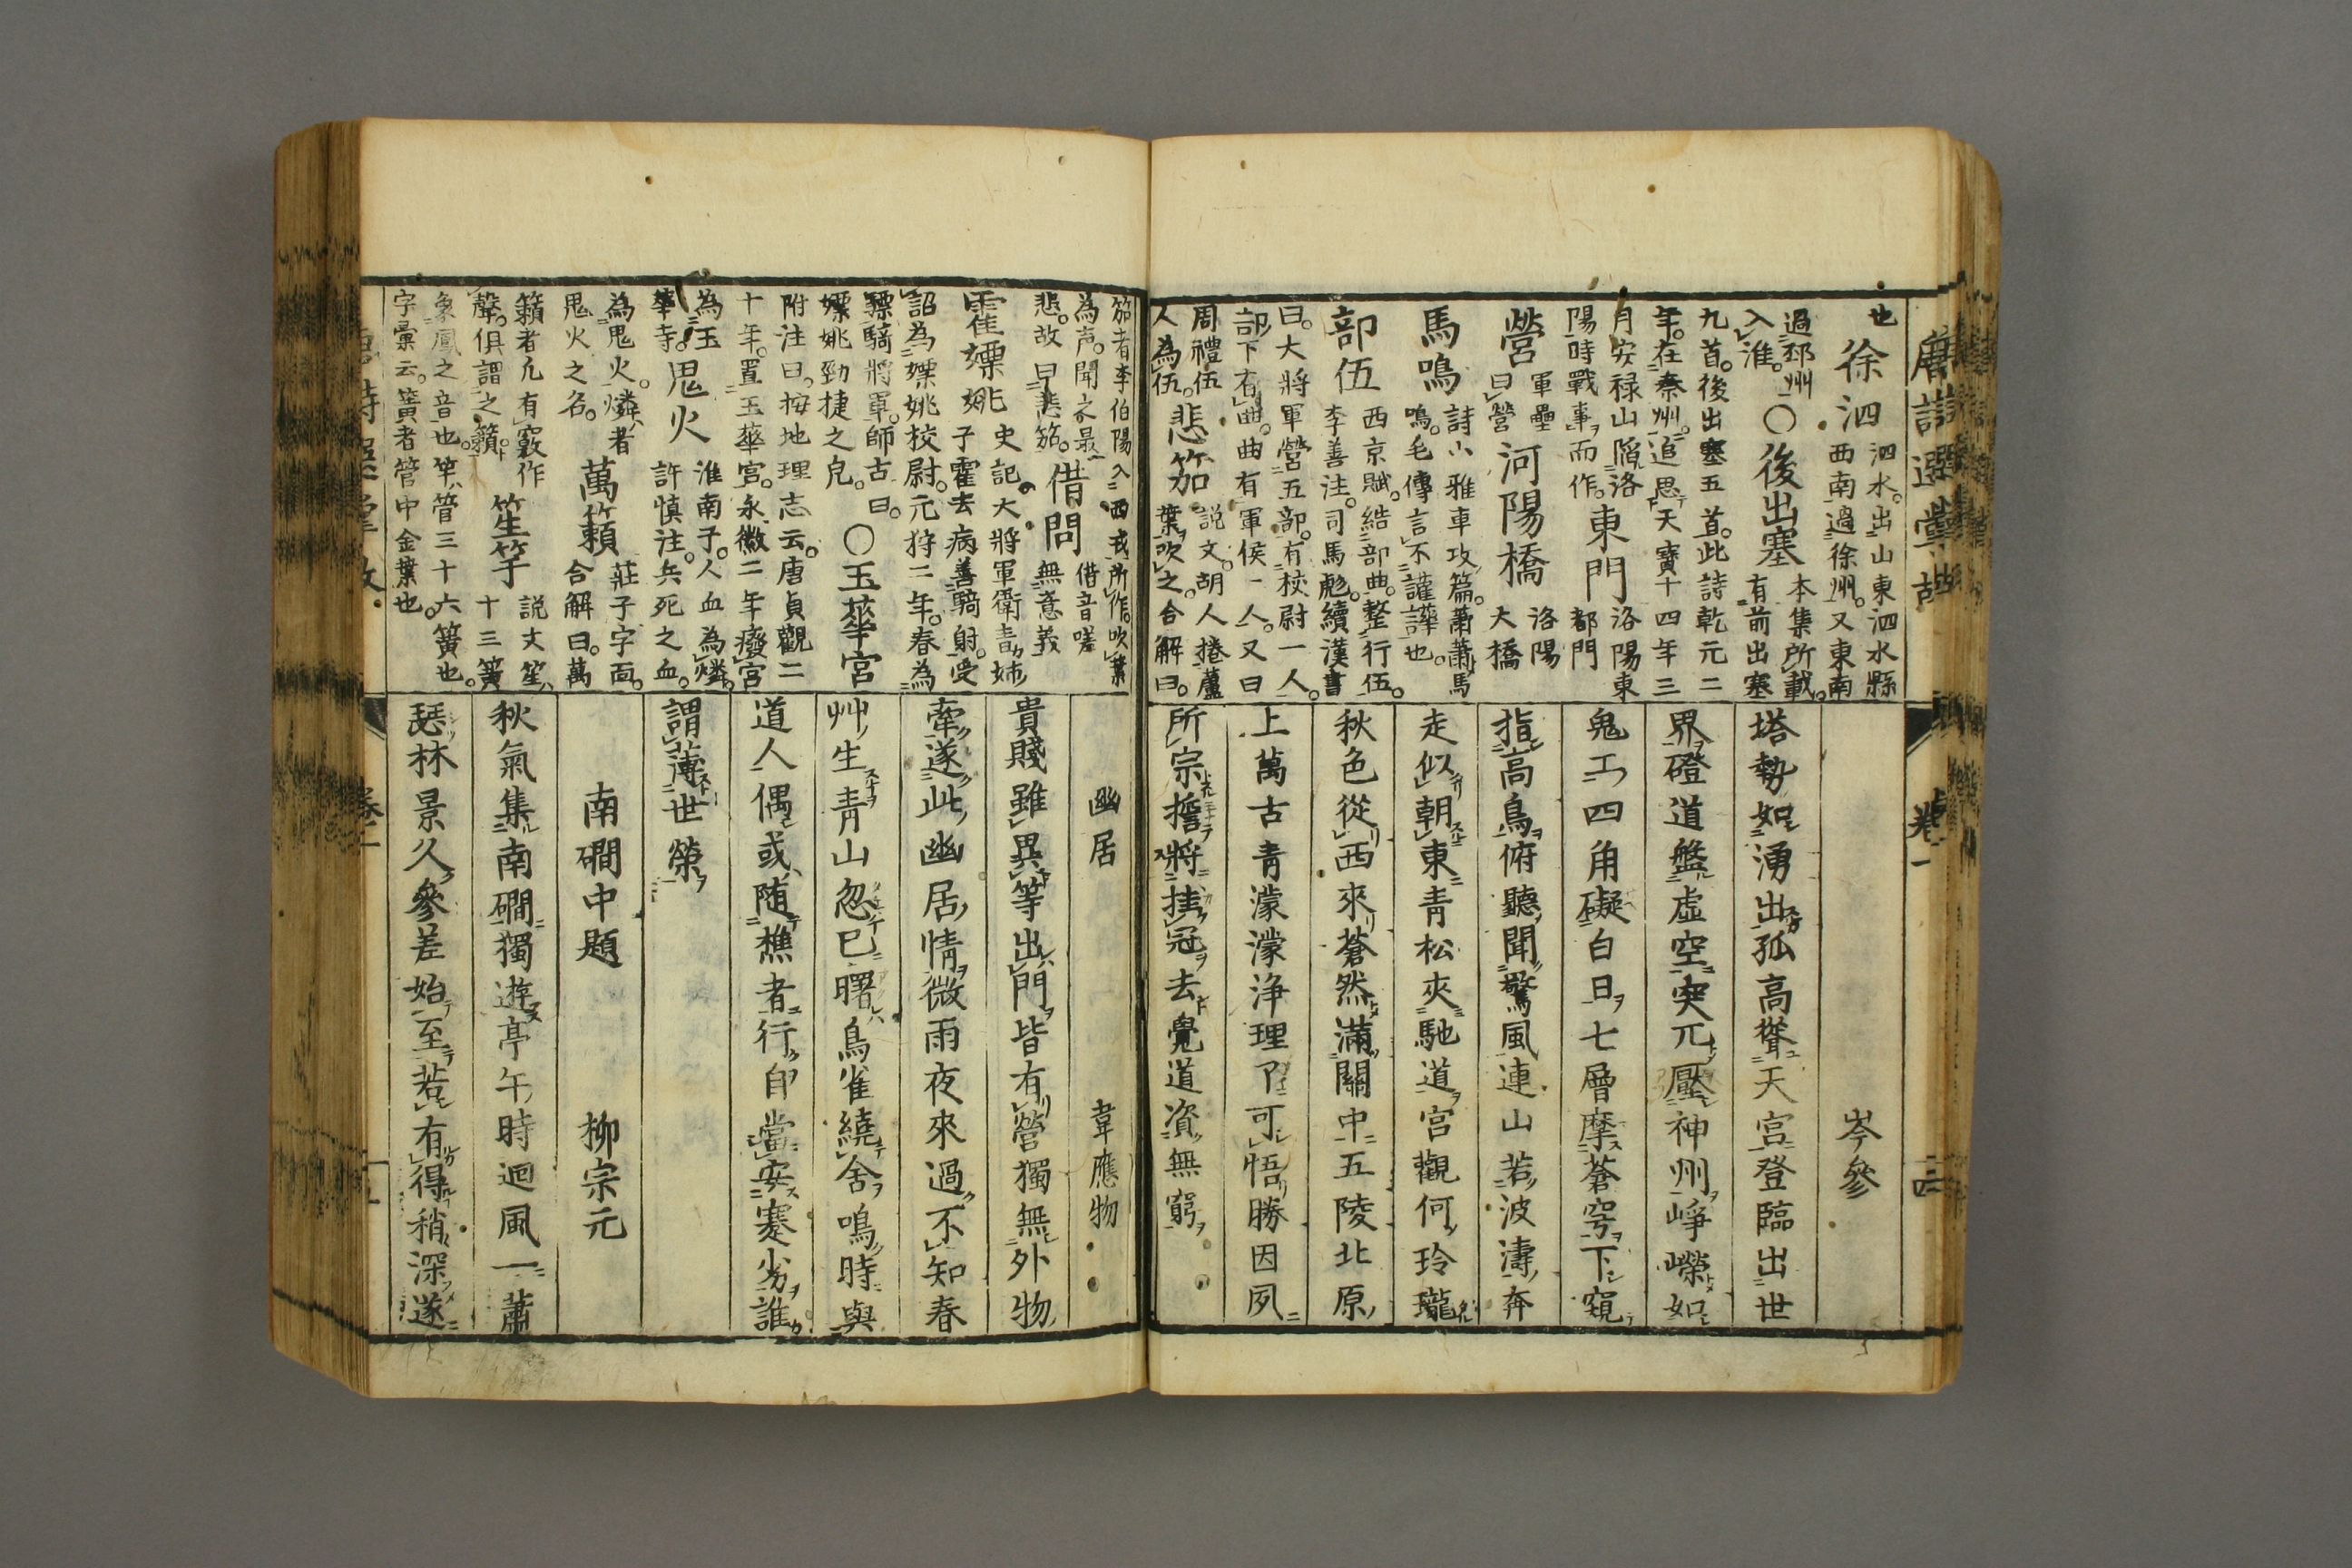 唐詩選掌故
卷一
四
也
徐泗
泗水。出山東泗水縣
西南過徐州。又東南
過邳州
入淮。
〇後出塞
本集所載。
有前出塞
九首。後出塞五首。此詩乾元二
年。在秦州。追思天寶十四年三
月安禄山陷洛
陽時戰事而作。
東門
洛陽東
都門
營
軍壘
曰營
河陽橋
洛陽
大橋
馬鳴
詩小雅車攻篇。蕭蕭馬
鳴。毛傳言不讙譁也。
部伍
西京賦。結部曲。整行伍。
李善注。司馬彪。續漢書
曰。大將軍營五部。有校尉一人。
部下有曲。曲有軍侯一人。又曰
周禮伍
人為伍。
悲笳
説文。胡人捲蘆
葉吹之。合解曰。
岑參
塔勢如湧出孤高聳天宮登臨出世
界磴道盤虚空突兀壓神州崢嶸如
鬼工四角礙白日七層摩蒼穹下窺
指高鳥俯聽聞驚風連山若波濤奔
走似朝東青松夾馳道宮觀何玲瓏
秋色從西來蒼然滿關中五陵北原
上萬古青濛濛浄理了可悟勝因夙
所宗誓將挂冠去覺道資無窮
笳者李伯陽入西戎所作。吹葉
為声。聞之最
悲。故曰悲笳。
借問
借音嗟
無意義
霍嫖姚
史記大將軍衛青姊
子霍去病善騎射。受
詔為嫖姚校尉。元狩二年。春為
驃騎將軍。師古曰。
嫖姚勁捷之皃。
〇玉華宮
附注曰。按地理志云。唐貞觀二
十年。置玉華宮。永徽二年癈宮
為玉
華寺。
鬼火
淮南子。人血為燐。
許慎注。兵死之血。
為鬼火。燐者
鬼火之名。
萬籟
莊子字面。
合解曰。萬
籟者凢有竅作
聲。俱謂之籟。
笙竽
説文笙
十三簧
象鳳之音也。竽管三十六簧也。
字彙云。簧者管中金葉也。
幽居
韋應物
貴賤雖異等出門皆有營獨無外物
牽遂此幽居情微雨夜來過不知春
艸生青山忽已曙鳥雀繞舍鳴時與
道人偶或随樵者行自當安蹇劣誰
謂薄世榮
南磵中題
柳宗元
秋氣集南磵獨遊亭午時迴風一蕭
瑟林景久參差始至若有得稍深遂